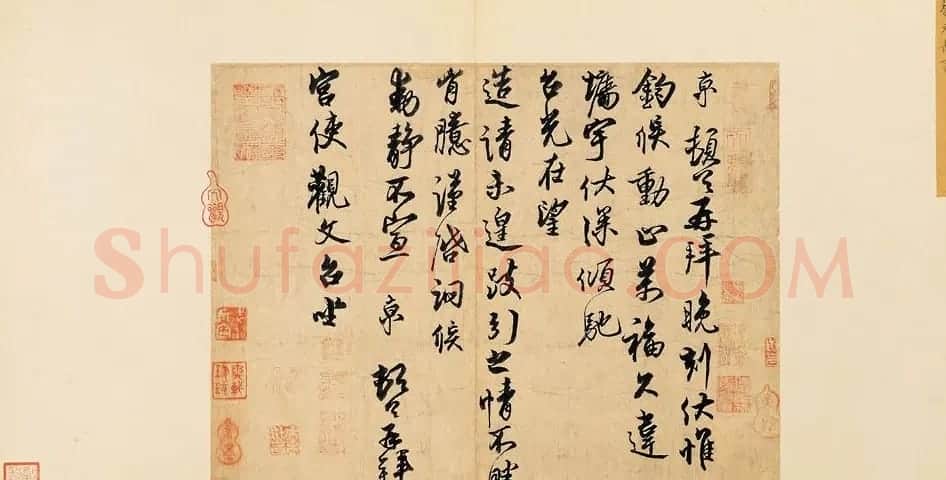 京頓首再拜晚刻伏惟
鈞候動止萬福久違
墻宇伏深傾馳
台光在望
造請未遑跂引之情不勝
胷臆謹啓詞候
動靜不宣京頓首再拜
宮使觀文台坐
Shufaziliao.COM